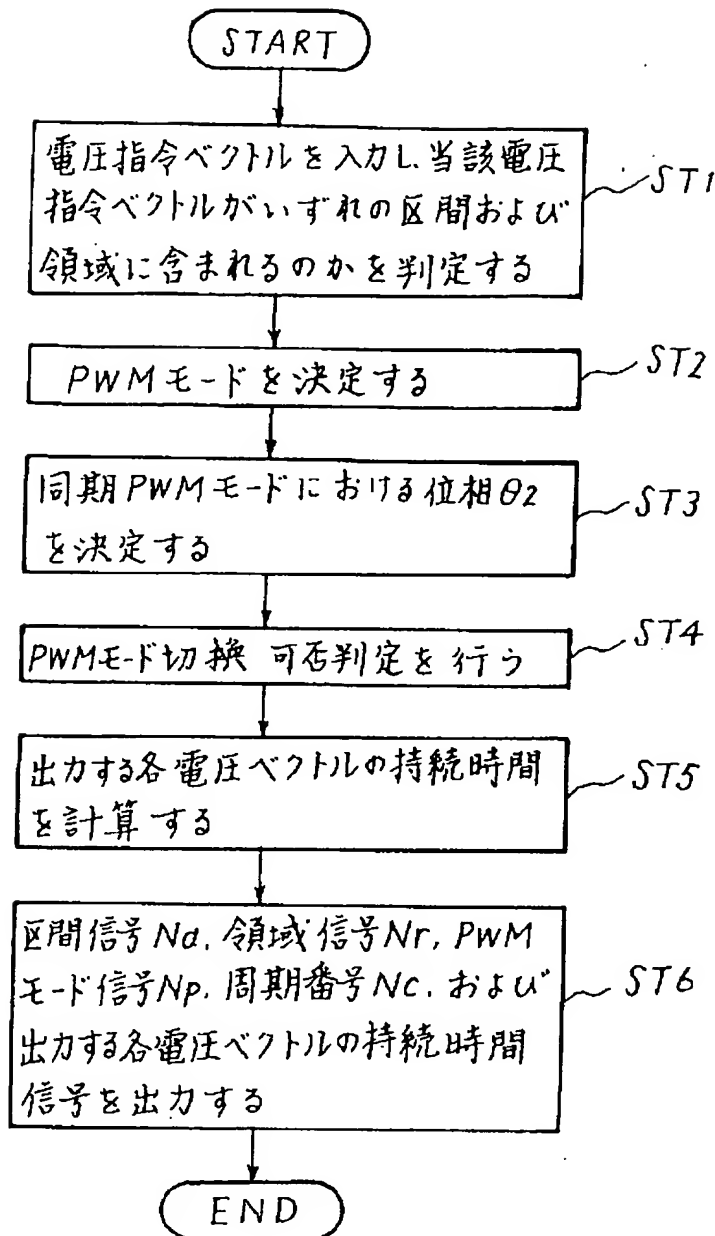 START
電圧指令ベクトルを入力し、当該電圧
指令ベクトルがいずれの区間および
領域に含まれるのかを判定する
ST1
PWMモードを決定する
ST2
同期PWMモードにおける位相θ2
を決定する
ST3
PWMモード切換 可否判定を行う
ST4
出力する各電圧ベクトルの持続時間
を計算する
ST5
区間信号Na、領域信号Nr、PWM
モード信号Np、周期番号Nc、および
出力する各電圧ベクトルの持続時間
信号を出力する
ST6
END